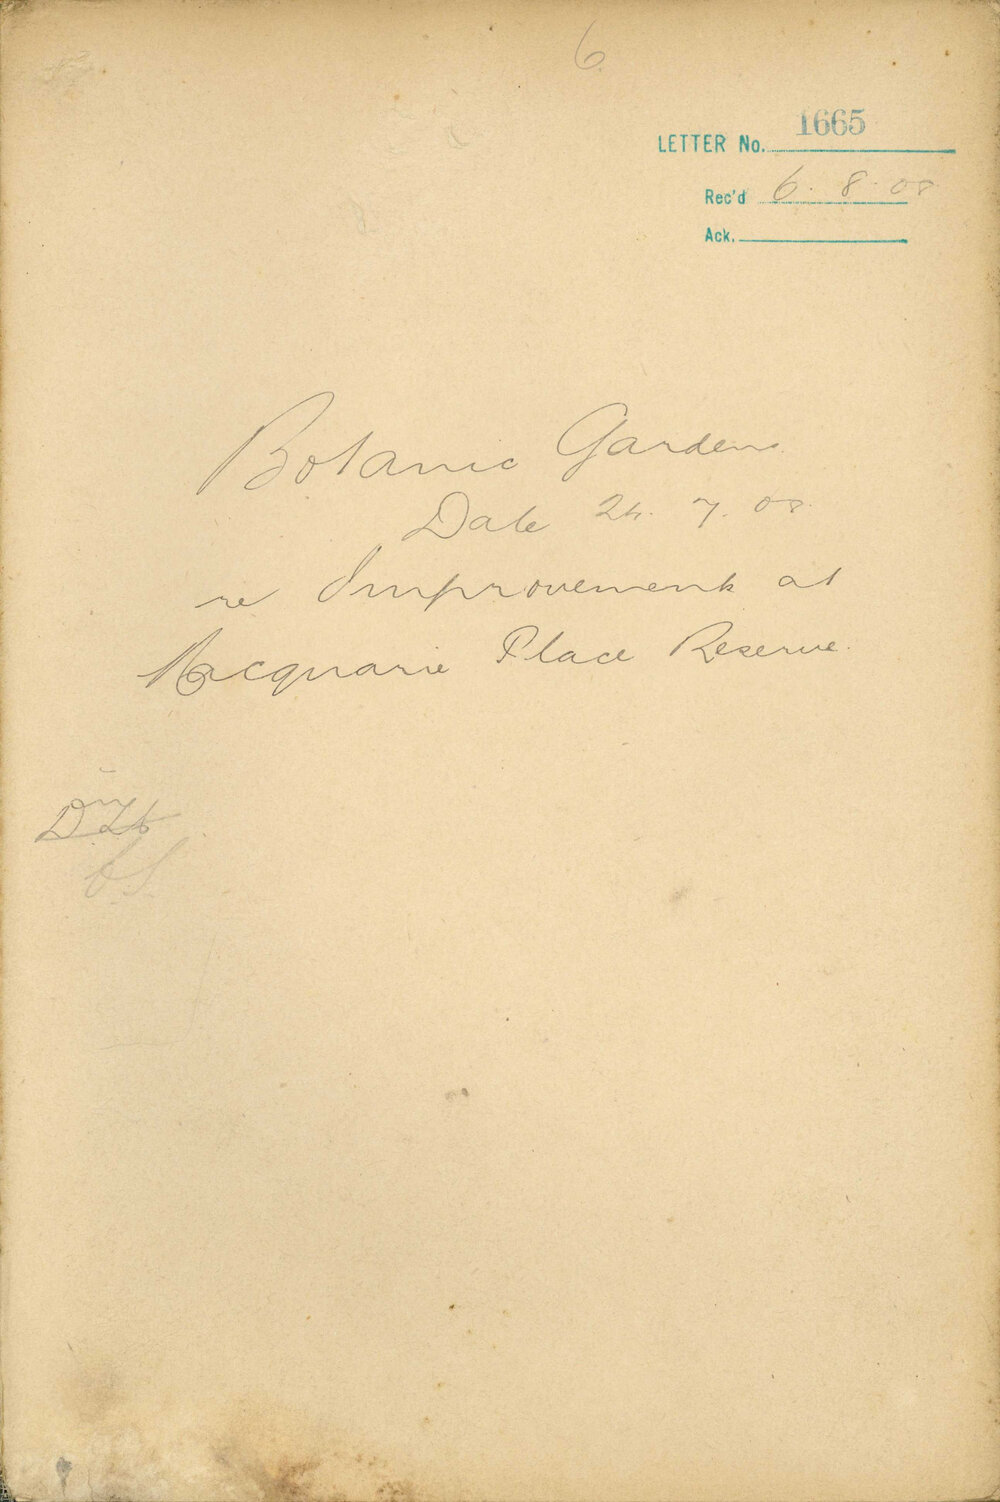 6
LETTER No. 1665
Rec'd 6. 8. 08
Ack.
Botanic Gardens
Date 24. 7. 08
re Improvement at
Macquarie Place Reserve.